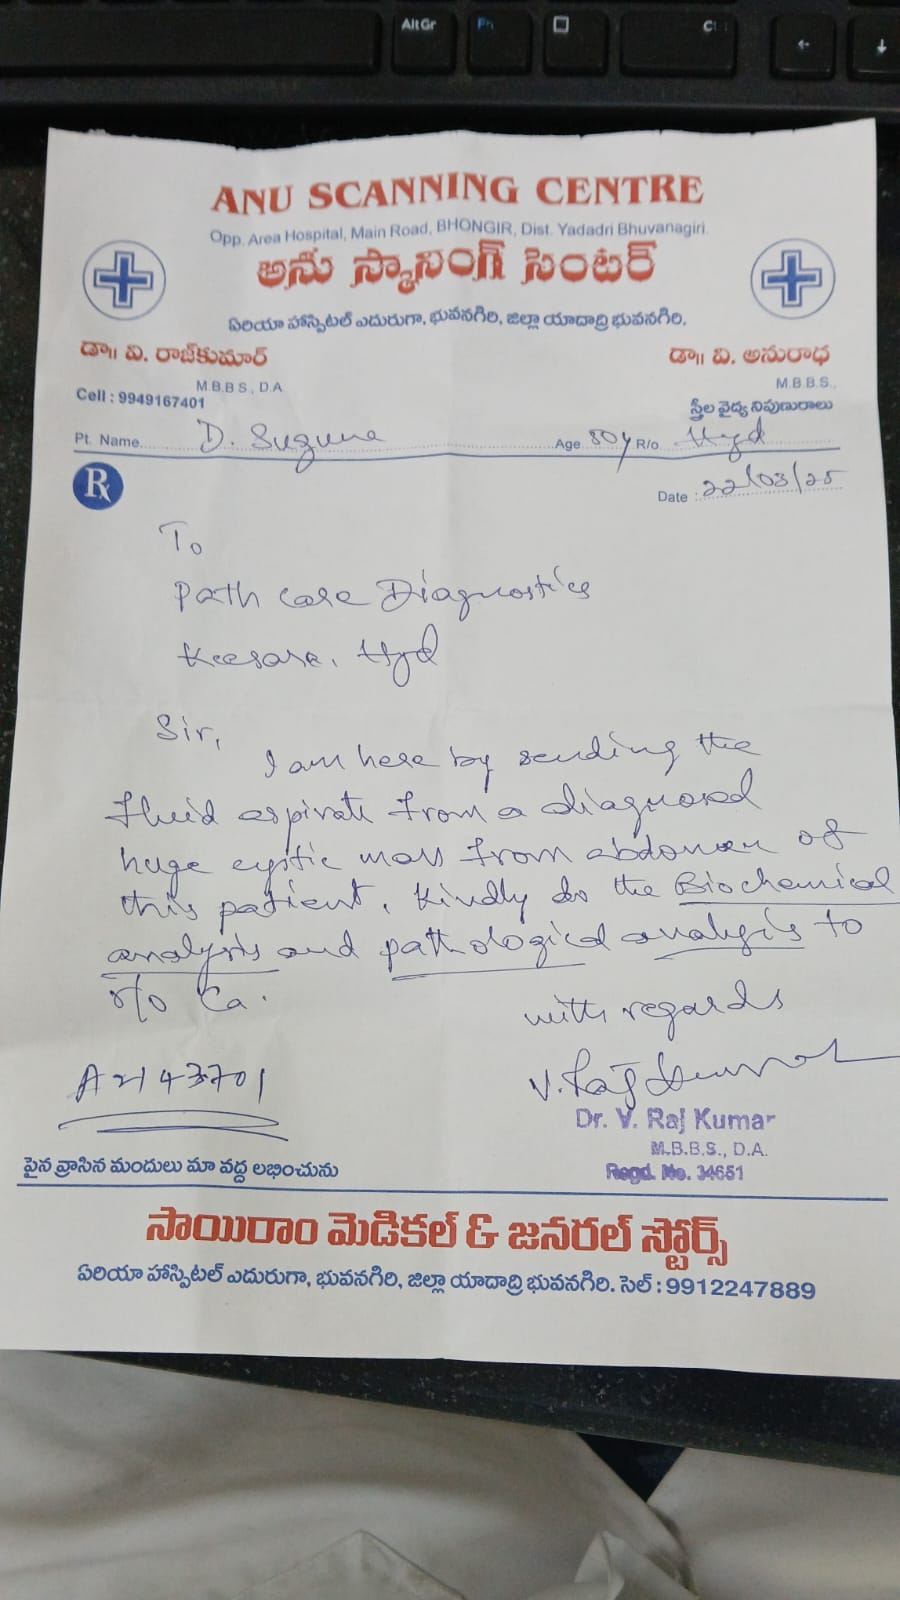 Alt Gr
Fn
Ctrl
ANU SCANNING CENTRE
Opp. Area Hospital, Main Road, BHONGIR, Dist. Yadadri Bhuvanagiri.
అను స్కానింగ్ సెంటర్
ఏరియా హాస్పిటల్ ఎదురుగా, భువనగిరి, జిల్లా యాదాద్రి భువనగిరి.
డా॥ వి. రాజ్‌కుమార్ డా॥ వి. అనురాధ
M.B.B.S., D.A M.B.B.S.,
Cell : 9949167401 స్త్రీల వైద్య నిపుణురాలు
Pt. Name D. Suguna Age 80y R/o Hyd
Rx Date : 22/03/25
To
Path care Diagnostics
Keesara, Hyd
Sir,
I am here by sending the
fluid aspirate from a diagnosed
huge cystic mass from abdomen of
this patient. Kindly do the Biochemical
analysis and pathological analysis to
r/o Ca.
with regards
V. Raj Kumar
A2143701
Dr. V. Raj Kumar
M.B.B.S., D.A.
Regd. No. 34651
పైన వ్రాసిన మందులు మా వద్ద లభించును
సాయిరాం మెడికల్ & జనరల్ స్టోర్స్
ఏరియా హాస్పిటల్ ఎదురుగా, భువనగిరి, జిల్లా యాదాద్రి భువనగిరి. సెల్ : 9912247889